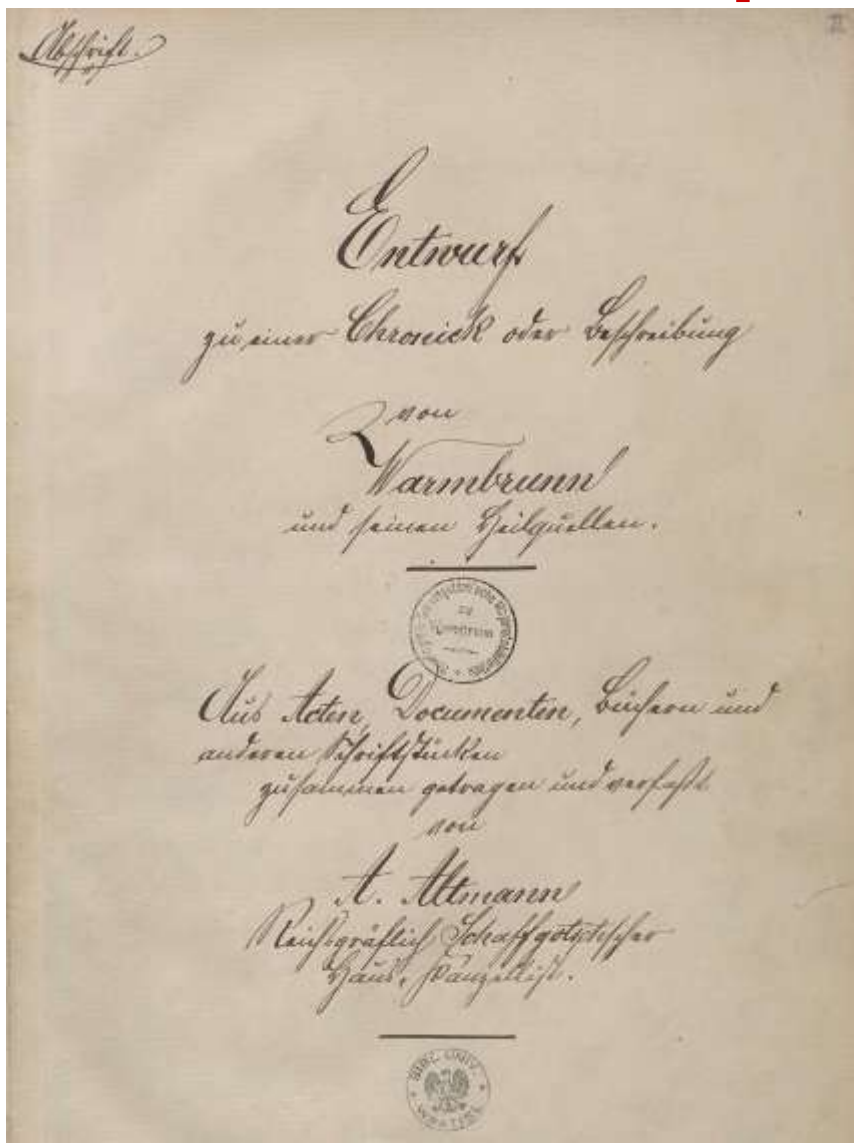 Abschrift.
II
Entwurf
zu einer Chronick oder Beschreibung
von
Warmbrunn
und seinen Heilquellen.
zu
Warmbrunn
Aus Acten, Documenten, Büchern und
anderen Schriftstücken
zusammen getragen und verfaßt
von
A. Altmann
Reichsgräflich Schaffgotsch'scher
Haus-Kanzellist.
BIBL. UNIV.
WRATISL.